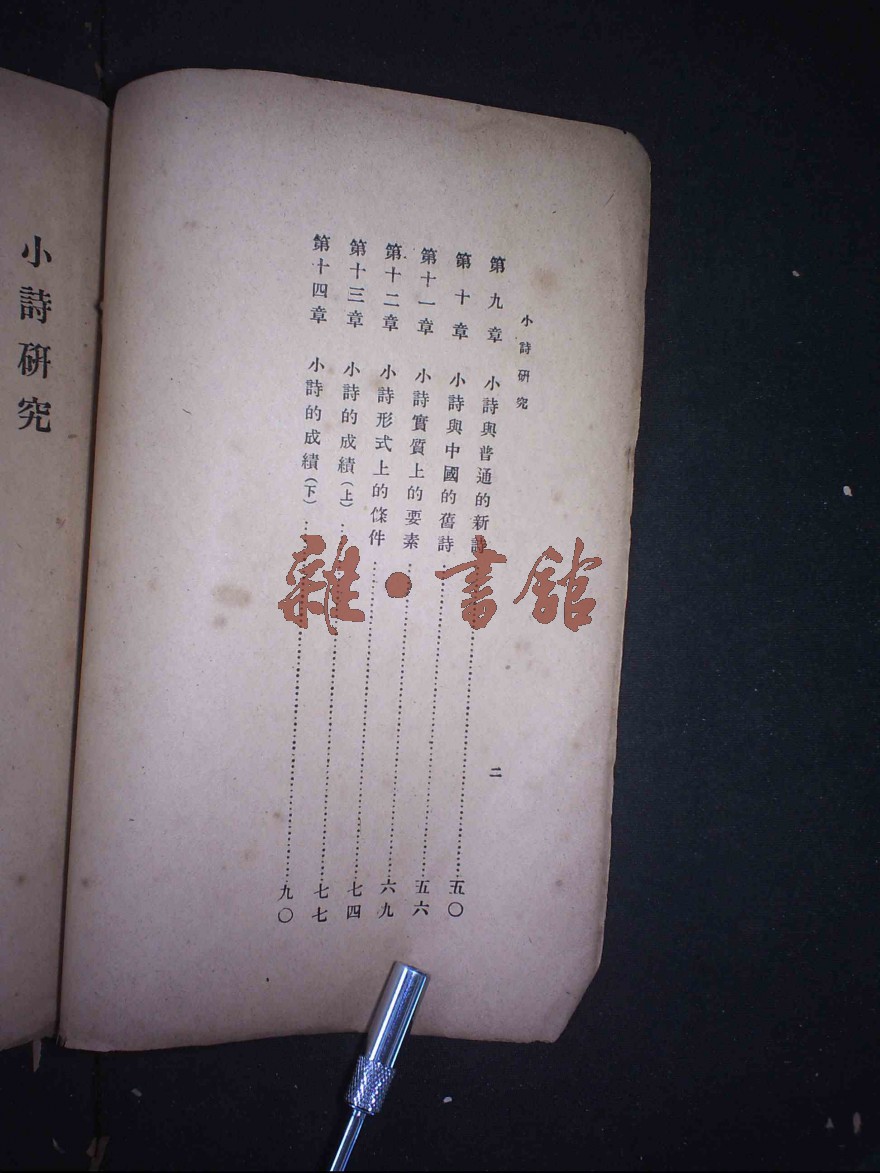 小詩研究
二
第九章 小詩與普通的新詩……五〇
第十章 小詩與中國的舊詩……五六
第十一章 小詩實質上的要素……六九
第十二章 小詩形式上的條件……七四
第十三章 小詩的成績(上)……七七
第十四章 小詩的成績(下)……九〇
小詩研究
雜·書館